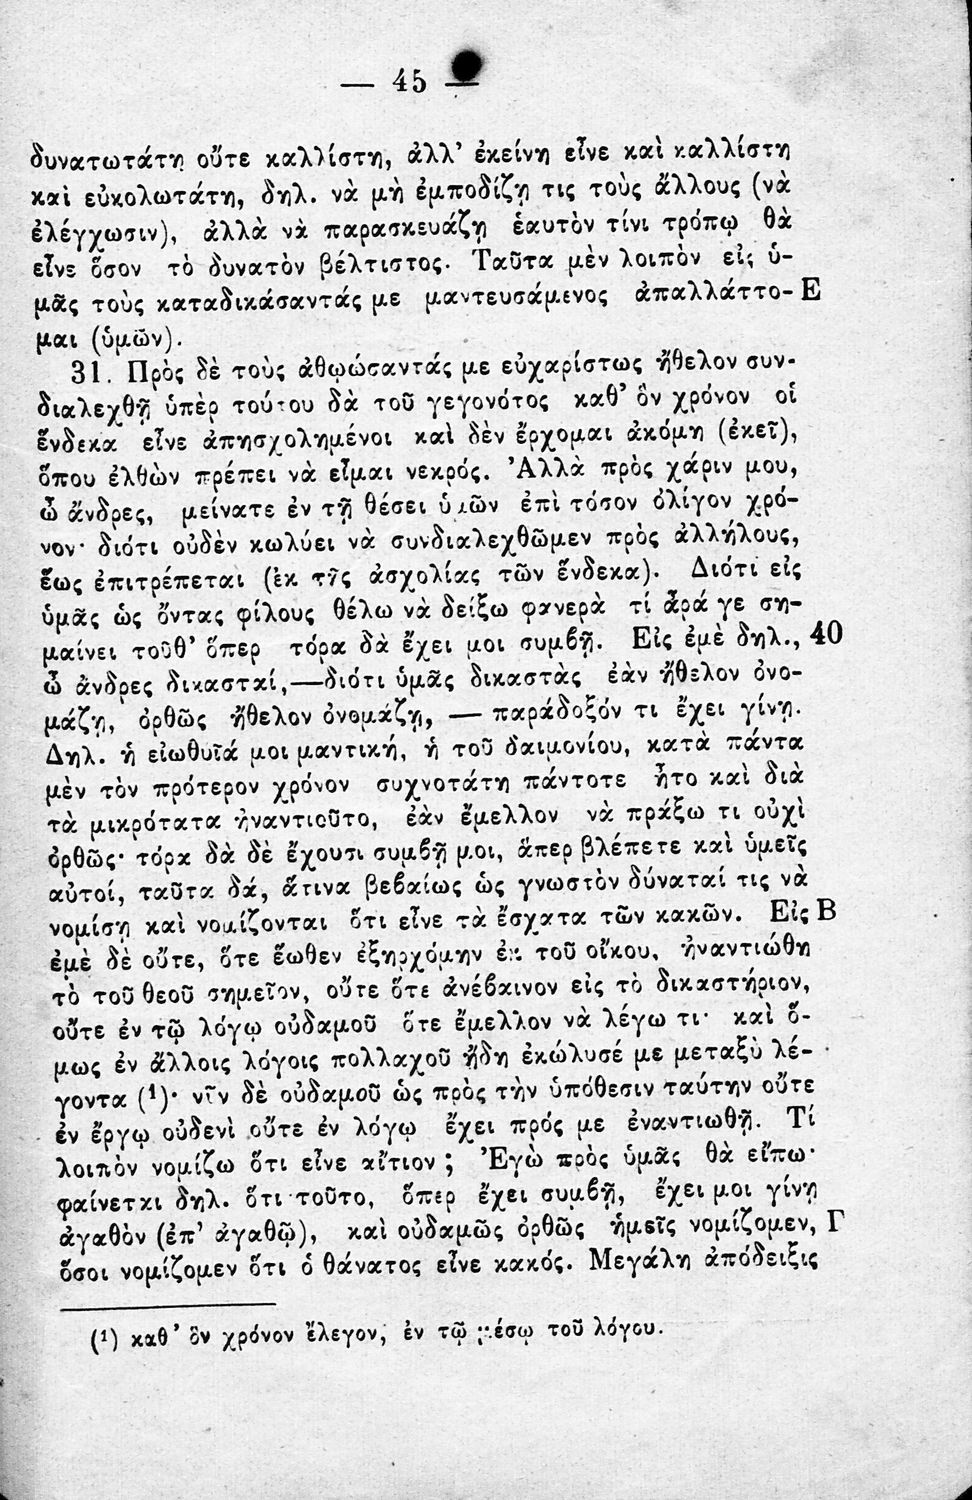 — 45 —
δυνατωτάτη οὔτε καλλίστη, ἀλλ’ ἐκείνη εἶνε καὶ καλλίστη
καὶ εὐκολωτάτη, δηλ. νὰ μὴ ἐμποδίζῃ τις τοὺς ἄλλους (νὰ
ἐλέγχωσιν), ἀλλὰ νὰ παρασκευάζῃ ἑαυτὸν τίνι τρόπῳ θὰ
εἶνε ὅσον τὸ δυνατὸν βέλτιστος. Ταῦτα μὲν λοιπὸν εἰς ὑ-
μᾶς τοὺς καταδικάσαντάς με μαντευσάμενος ἀπαλλάττο- Ε
μαι (ὑμῶν).
31. Πρὸς δὲ τοὺς ἀθῳώσαντάς με εὐχαρίστως ἤθελον συν-
διαλεχθῇ ὑπὲρ τούτου δὰ τοῦ γεγονότος καθ’ ὃν χρόνον οἱ
ἕνδεκα εἶνε ἀπησχολημένοι καὶ δὲν ἔρχομαι ἀκόμη (ἐκεῖ),
ὅπου ἐλθὼν πρέπει νὰ εἶμαι νεκρός. Ἀλλὰ πρὸς χάριν μου,
ὦ ἄνδρες, μείνατε ἐν τῇ θέσει ὑμῶν ἐπὶ τόσον ὀλίγον χρό-
νον· διότι οὐδὲν κωλύει νὰ συνδιαλεχθῶμεν πρὸς ἀλλήλους,
ἕως ἐπιτρέπεται (ἐκ τῆς ἀσχολίας τῶν ἕνδεκα). Διότι εἰς
ὑμᾶς ὡς ὄντας φίλους θέλω νὰ δείξω φανερὰ τί ἆρά γε ση-
μαίνει τοῦθ’ ὅπερ τόρα δὰ ἔχει μοι συμβῇ. Εἰς ἐμὲ δηλ., 40
ὦ ἄνδρες δικασταί,—διότι ὑμᾶς δικαστὰς ἐὰν ἤθελον ὀνο-
μάζῃ, ὀρθῶς ἤθελον ὀνομάζῃ, — παράδοξόν τι ἔχει γίνῃ.
Δηλ. ἡ εἰωθυῖά μοι μαντική, ἡ τοῦ δαιμονίου, κατὰ πάντα
μὲν τὸν πρότερον χρόνον συχνοτάτη πάντοτε ἦτο καὶ διὰ
τὰ μικρότατα ἠναντιοῦτο, ἐὰν ἔμελλον νὰ πράξω τι οὐχὶ
ὀρθῶς· τόρα δὰ δὲ ἔχουσι συμβῇ μοι, ἅπερ βλέπετε καὶ ὑμεῖς
αὐτοί, ταῦτα δά, ἅτινα βεβαίως ὡς γνωστὸν δύναταί τις νὰ
νομίσῃ καὶ νομίζονται ὅτι εἶνε τὰ ἔσχατα τῶν κακῶν. Εἰς Β
ἐμὲ δὲ οὔτε, ὅτε ἕωθεν ἐξηρχόμην ἐκ τοῦ οἴκου, ἠναντιώθη
τὸ τοῦ θεοῦ σημεῖον, οὔτε ὅτε ἀνέβαινον εἰς τὸ δικαστήριον,
οὔτε ἐν τῷ λόγῳ οὐδαμοῦ ὅτε ἔμελλον νὰ λέγω τι· καὶ ὅ-
μως ἐν ἄλλοις λόγοις πολλαχοῦ ἤδη ἐκώλυσέ με μεταξὺ λέ-
γοντα (¹)· νῦν δὲ οὐδαμοῦ ὡς πρὸς τὴν ὑπόθεσιν ταύτην οὔτε
ἐν ἔργῳ οὐδενὶ οὔτε ἐν λόγῳ ἔχει πρός με ἐναντιωθῇ. Τί
λοιπὸν νομίζω ὅτι εἶνε αἴτιον ; Ἐγὼ πρὸς ὑμᾶς θὰ εἴπω·
φαίνεται δηλ. ὅτι τοῦτο, ὅπερ ἔχει συμβῇ, ἔχει μοι γίνῃ
ἀγαθὸν (ἐπ’ ἀγαθῷ), καὶ οὐδαμῶς ὀρθῶς ἡμεῖς νομίζομεν, Γ
ὅσοι νομίζομεν ὅτι ὁ θάνατος εἶνε κακός. Μεγάλη ἀπόδειξις
(¹) καθ’ ὃν χρόνον ἔλεγον, ἐν τῷ μέσῳ τοῦ λόγου.